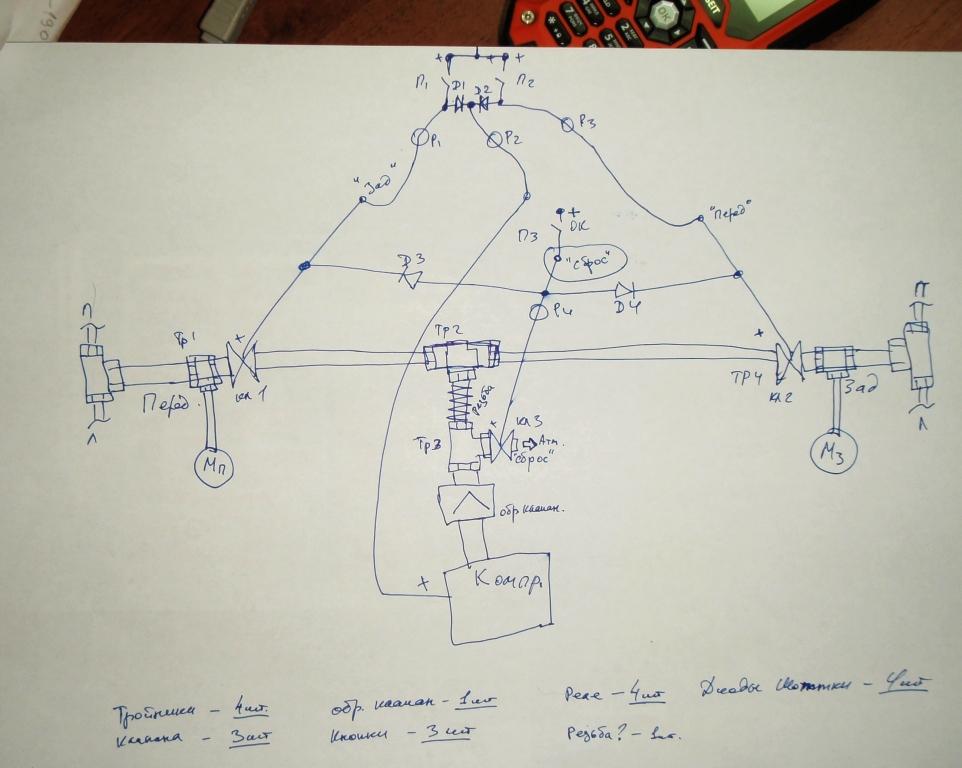 + + +
П1 Д1 Д2 П2
Р1 Р2 Р3
"Зад"
"Перед"
+
П3 ОК
"Сброс"
Д3
Р4 Д4
П П
Тр1 + Тр2 +
ТР4
Перед. кл1 Резьба кл2 Зад
л л
Тр3 + кл3
Атм.
"сброс"
Мп Мз
обр клапан.
+ Компр.
Тройники - 4шт. обр. клапан - 1шт Реле - 4шт Диоды Шоттки - 4шт
Клапана - 3шт Кнопки - 3шт Резьба? - 1шт.